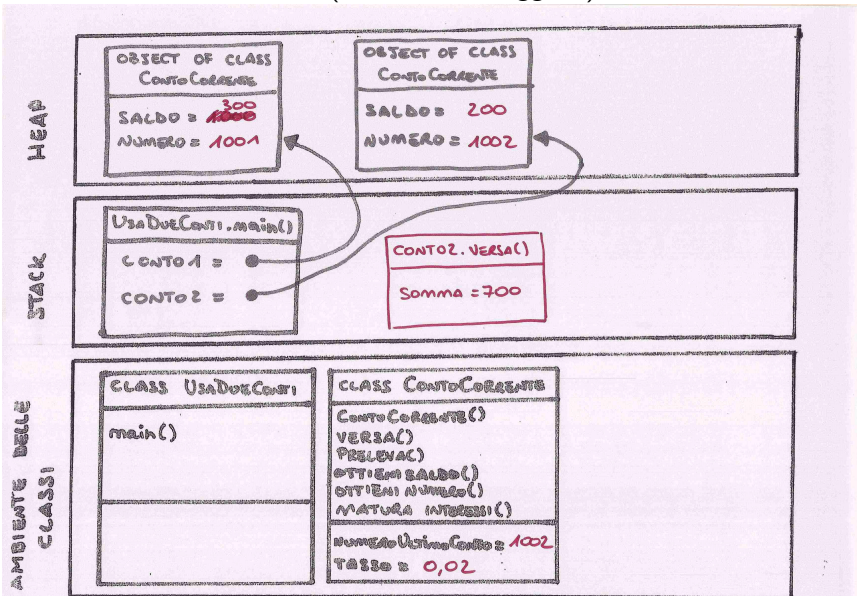 HEAP
OBJECT OF CLASS
ContoCorrente
300
SALDO = 1000
NUMERO = 1001
OBJECT OF CLASS
ContoCorrente
SALDO = 200
NUMERO = 1002
STACK
UsaDueConti.main()
CONTO1 =
CONTO2 =
CONTO2.VERSA()
SOMMA = 700
AMBIENTE DELLE
CLASSI
CLASS UsaDueConti
main()
CLASS ContoCorrente
ContoCorrente()
VERSA()
PRELEVA()
OTTIENI SALDO()
OTTIENI NUMERO()
MATURA INTERESSI()
NUMEROUltimoConto = 1002
TASSO = 0,02